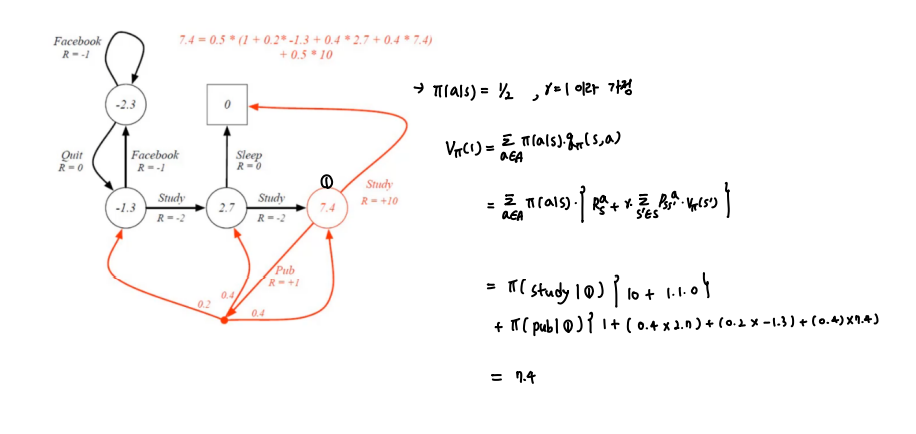 Facebook
R = -1
7.4 = 0.5 * (1 + 0.2* -1.3 + 0.4 * 2.7 + 0.4 * 7.4)
+ 0.5 * 10
-2.3
0
Quit
R = 0
Facebook
R = -1
Sleep
R = 0
-1.3
Study
R = -2
2.7
Study
R = -2
①
7.4
Study
R = +10
Pub
R = +1
0.2
0.4
0.4
→ π(a|s) = 1/2 , γ=1 이라 가정
Vπ(1) = Σ a∈A π(a|s)·qπ(s,a)
= Σ a∈A π(a|s)·{ Rsᵃ + γ· Σ s'∈S Pss'ᵃ · Vπ(s') }
= π( study | ① ) { 10 + 1·1·0 }
+ π( pub | ① ) { 1 + ( 0.4 x 2.7 ) + (0.2 x -1.3) + (0.4) x 7.4 )
= 7.4